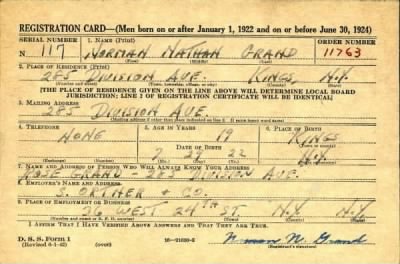 REGISTRATION CARD—(Men born on or after January 1, 1922 and on or before June 30, 1924)
SERIAL NUMBER 1. NAME (Print) ORDER NUMBER
N 117 NORMAN NATHAN GRAND 11763
(First) (Middle) (Last)
2. PLACE OF RESIDENCE (Print)
285 DIVISION AVE. KINGS, N.Y.
(Number and street) (Town, township, village, or city) (County) (State)
[THE PLACE OF RESIDENCE GIVEN ON THE LINE ABOVE WILL DETERMINE LOCAL BOARD
JURISDICTION; LINE 2 OF REGISTRATION CERTIFICATE WILL BE IDENTICAL]
3. MAILING ADDRESS
285 DIVISION AVE.
(Mailing address if other than place indicated on line 2. If same insert word same)
4. TELEPHONE 5. AGE IN YEARS 6. PLACE OF BIRTH
NONE 19 KINGS
DATE OF BIRTH (Town or county)
7 29 22 N.Y.
(Exchange) (Number) (Mo.) (Day) (Yr.) (State or country)
7. NAME AND ADDRESS OF PERSON WHO WILL ALWAYS KNOW YOUR ADDRESS
ROSE GRAND - 285 DIVISION AVE
8. EMPLOYER'S NAME AND ADDRESS
& CO.
9. PLACE OF EMPLOYMENT OR BUSINESS
36 WEST 24TH ST N.Y. N.Y.
(Number and street or R. F. D. number) (Town) (County) (State)
I AFFIRM THAT I HAVE VERIFIED ABOVE ANSWERS AND THAT THEY ARE TRUE.
D. S. S. Form 1
(Revised 6-1-42) 16—21630-2 Norman N. Grand
(Registrant's signature)